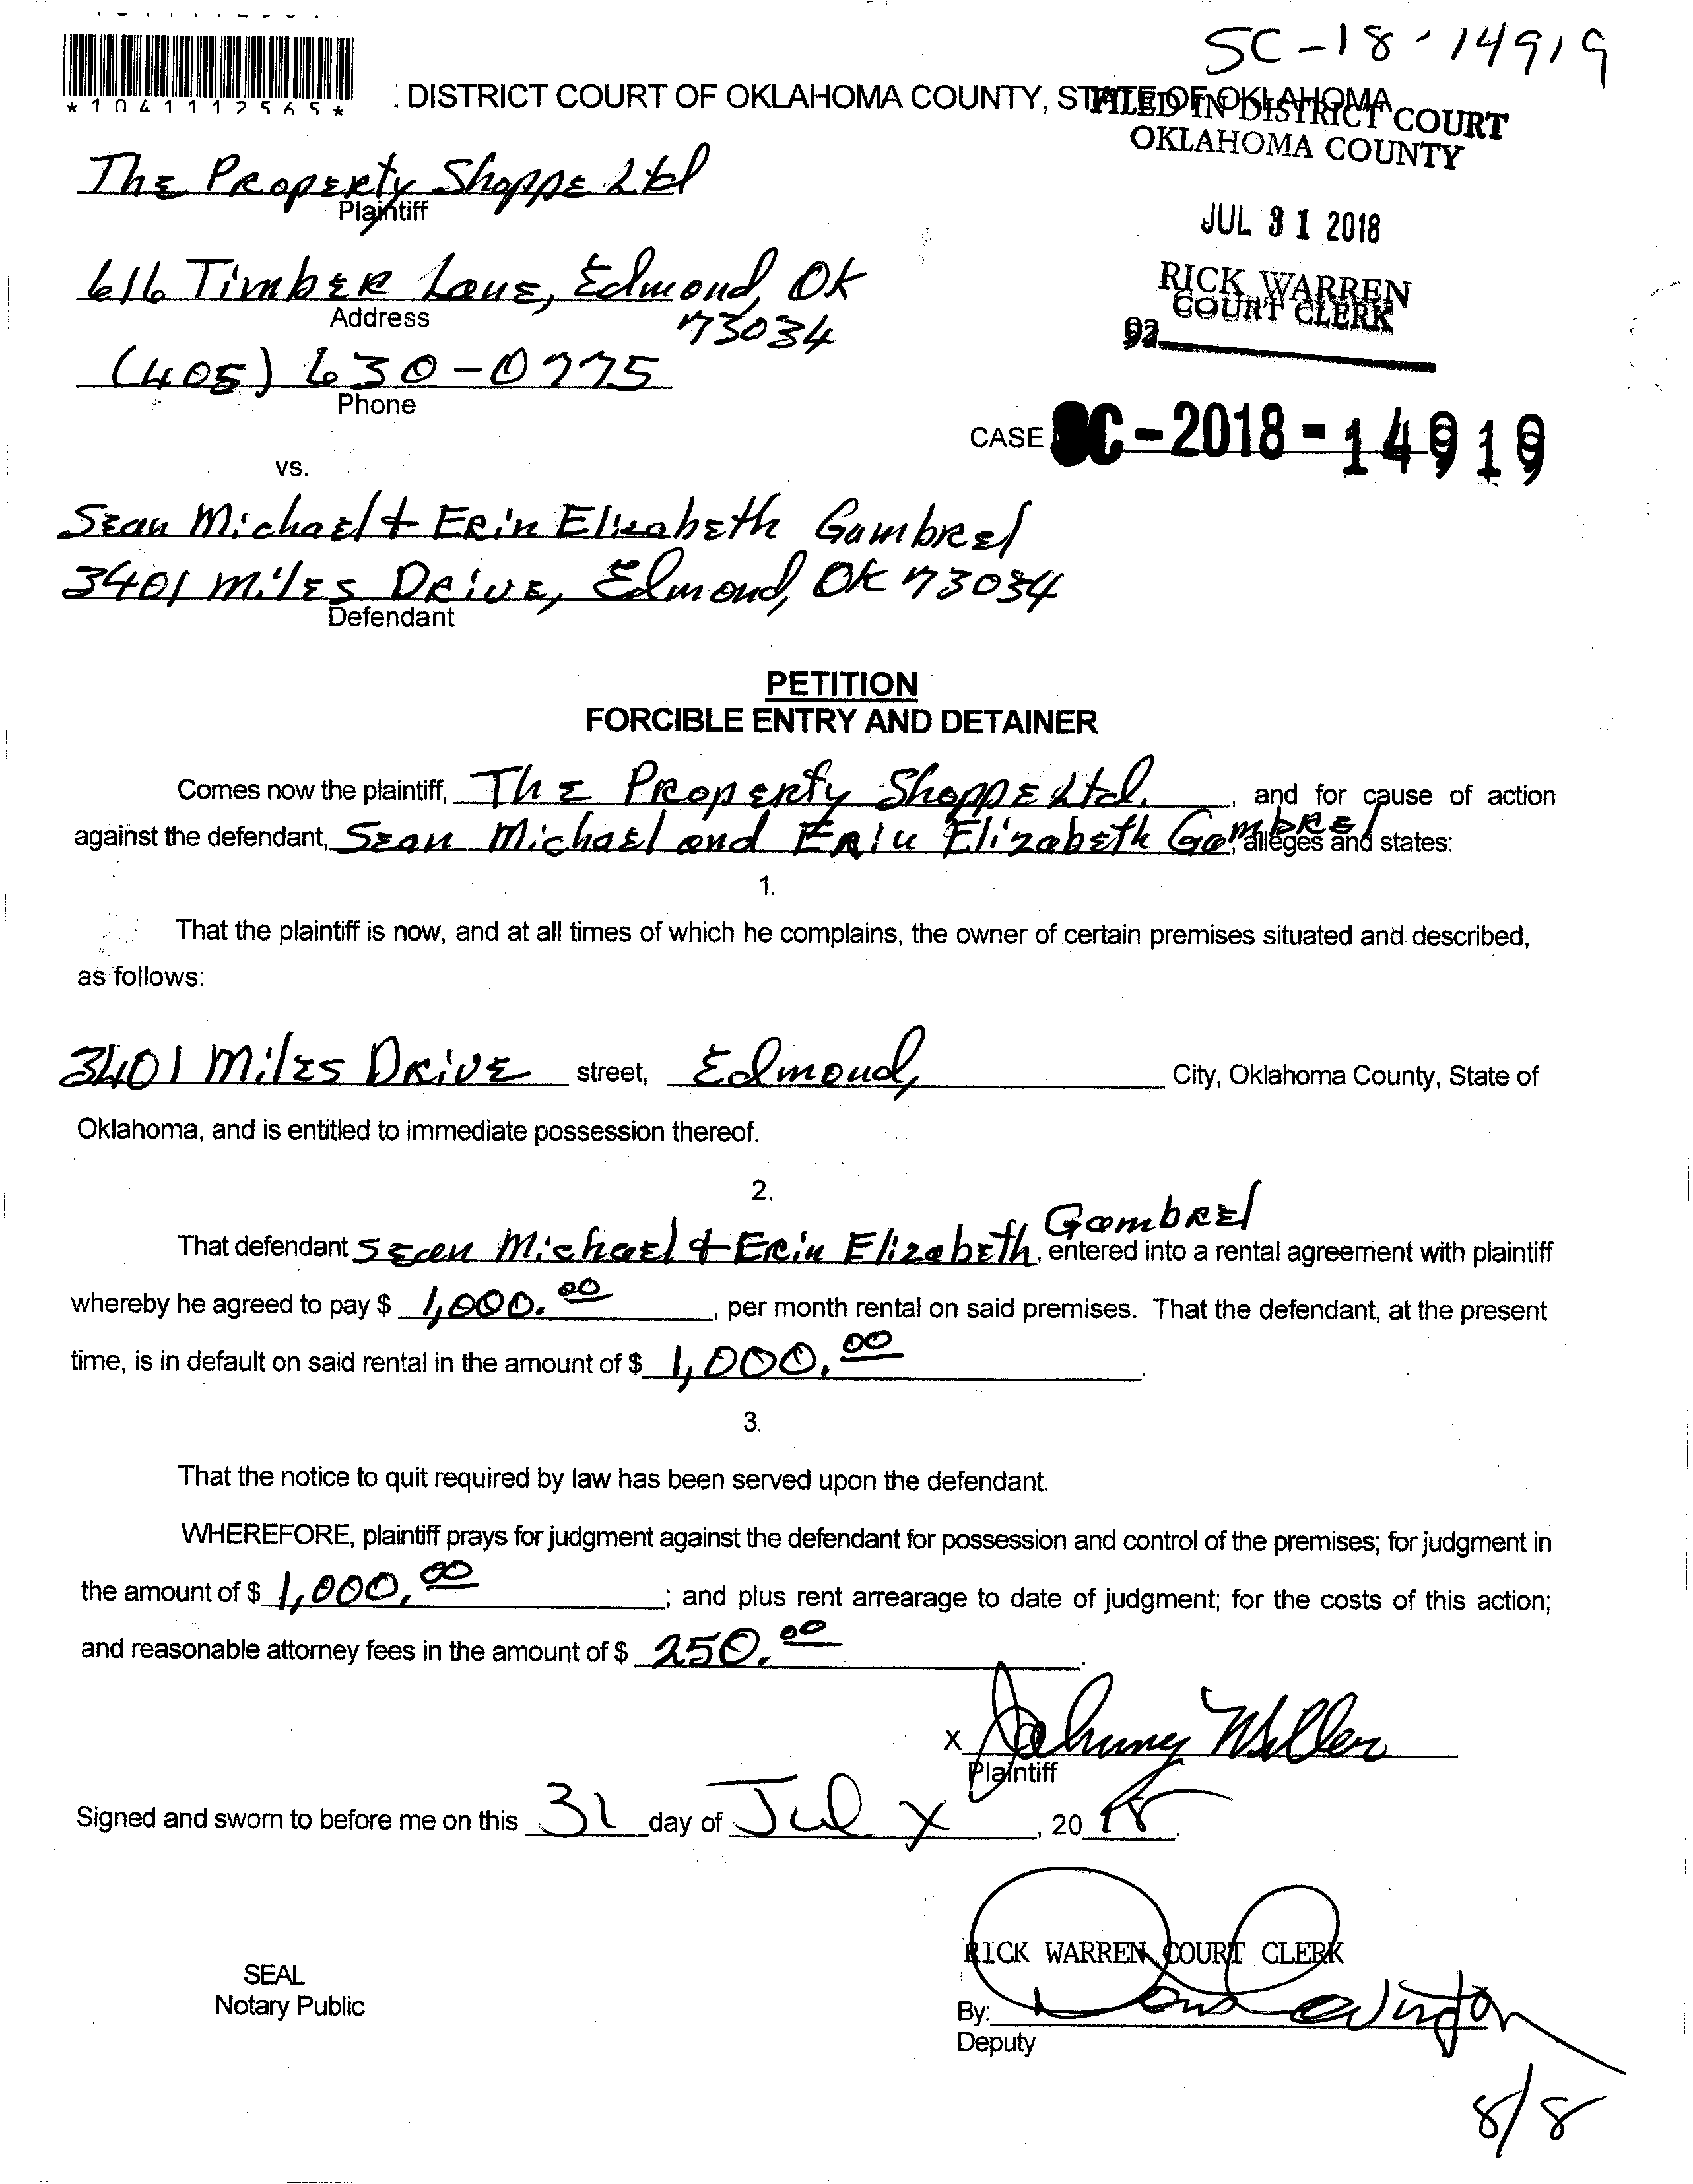 SC-18-14919
*1041112565*
: DISTRICT COURT OF OKLAHOMA COUNTY, STATE OF OKLAHOMA
FILED IN DISTRICT COURT
OKLAHOMA COUNTY
The Property Shoppe Ltd
Plaintiff
JUL 31 2018
616 Timber Lane, Edmond, OK
73034
Address
RICK WARREN
COURT CLERK
92
(405) 630-0775
Phone
CASE SC-2018-14919
vs.
Sean Michael + Erin Elizabeth Gambrel
3401 Miles Drive, Edmond, OK 73034
Defendant
PETITION
FORCIBLE ENTRY AND DETAINER
Comes now the plaintiff, The Property Shoppe Ltd., and for cause of action
against the defendant, Sean Michael and Erin Elizabeth Gambrel, alleges and states:
1.
That the plaintiff is now, and at all times of which he complains, the owner of certain premises situated and described,
as follows:
3401 Miles Drive street, Edmond, City, Oklahoma County, State of
Oklahoma, and is entitled to immediate possession thereof.
2.
That defendant Sean Michael + Erin Elizabeth Gambrel, entered into a rental agreement with plaintiff
whereby he agreed to pay $ 1,000.00, per month rental on said premises. That the defendant, at the present
time, is in default on said rental in the amount of $ 1,000.00.
3.
That the notice to quit required by law has been served upon the defendant.
WHEREFORE, plaintiff prays for judgment against the defendant for possession and control of the premises; for judgment in
the amount of $ 1,000.00; and plus rent arrearage to date of judgment; for the costs of this action;
and reasonable attorney fees in the amount of $ 250.00.
x Johnny Miller
Plaintiff
Signed and sworn to before me on this 31 day of July, 2018.
RICK WARREN COURT CLERK
SEAL
Notary Public
By:
Deputy
8/8